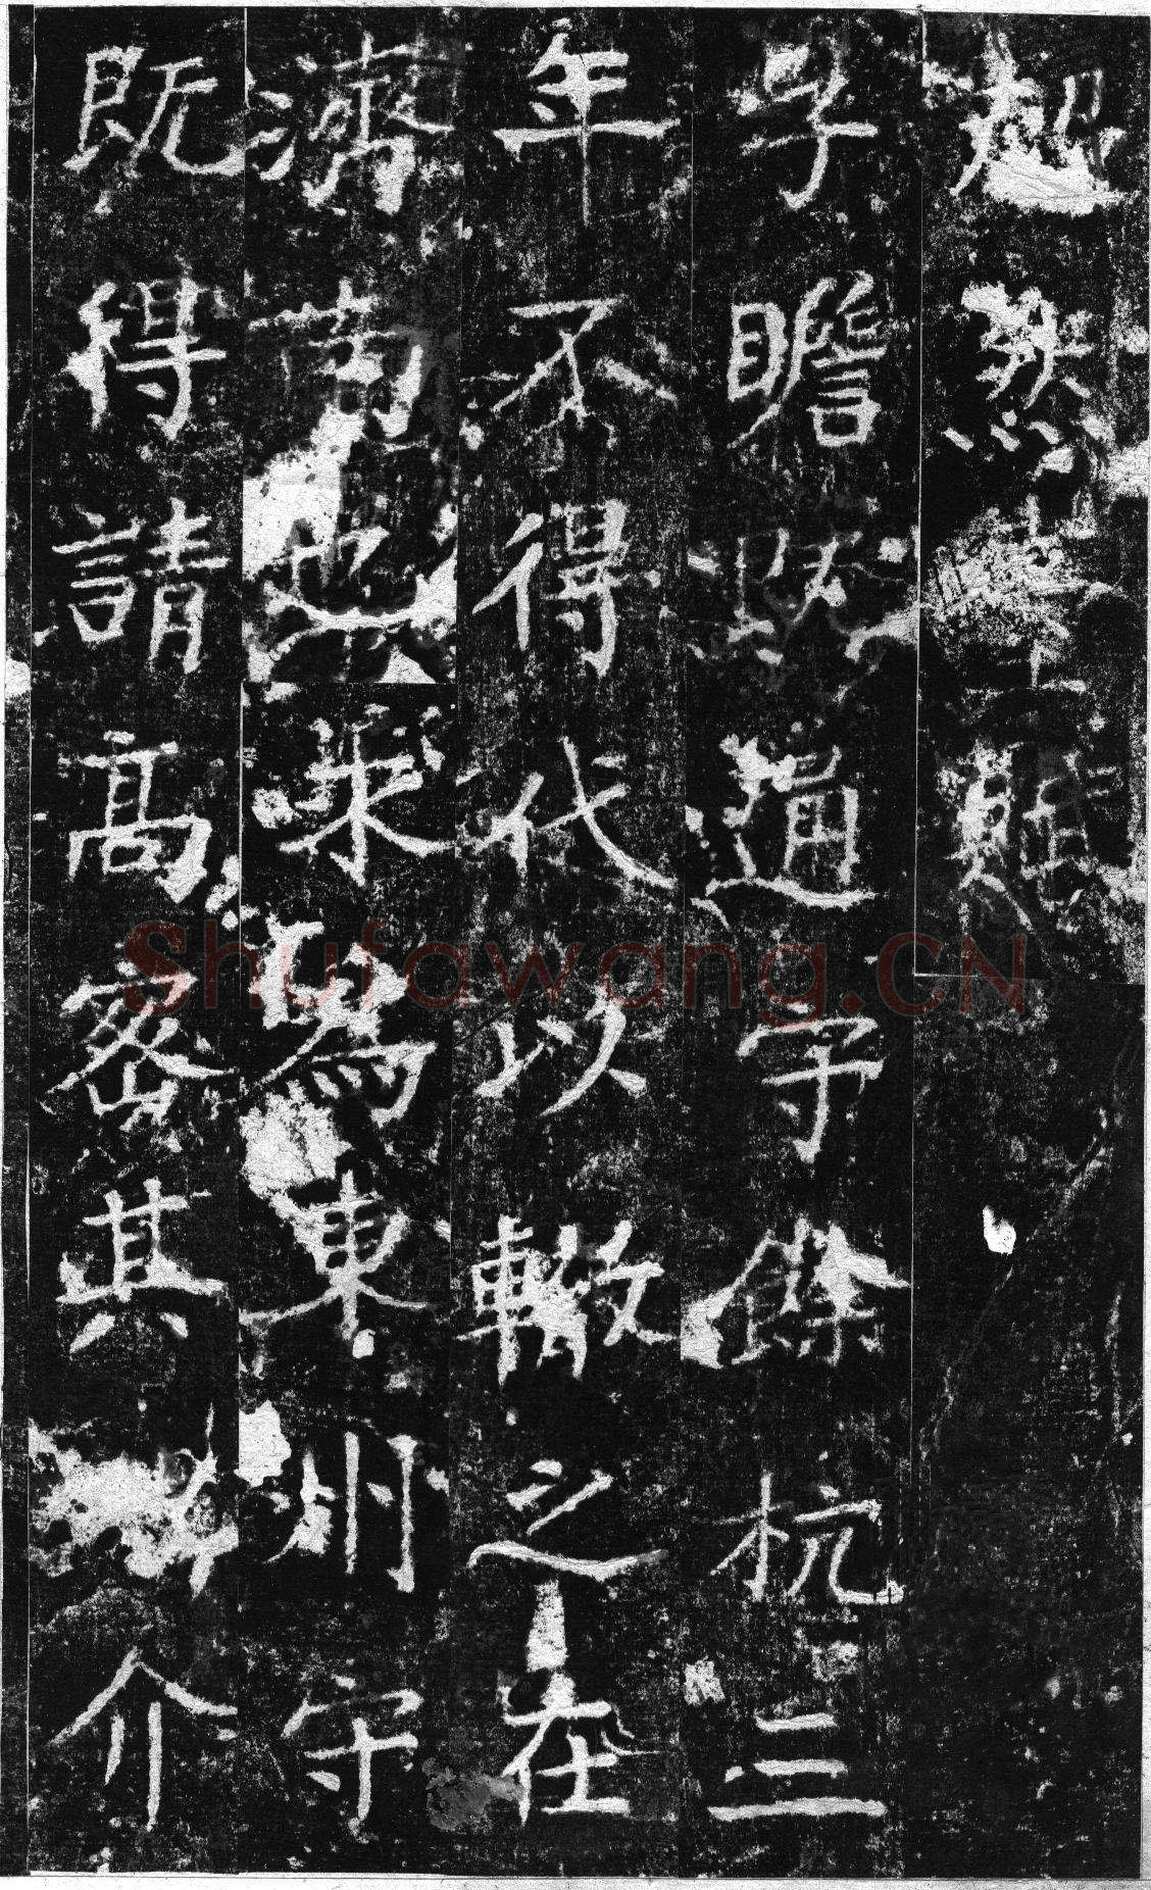 超然臺賦
子瞻以通守餘杭三
年不得代以轍之在
濟南也求為東州守
既得請高密其
介
Shufawang.CN